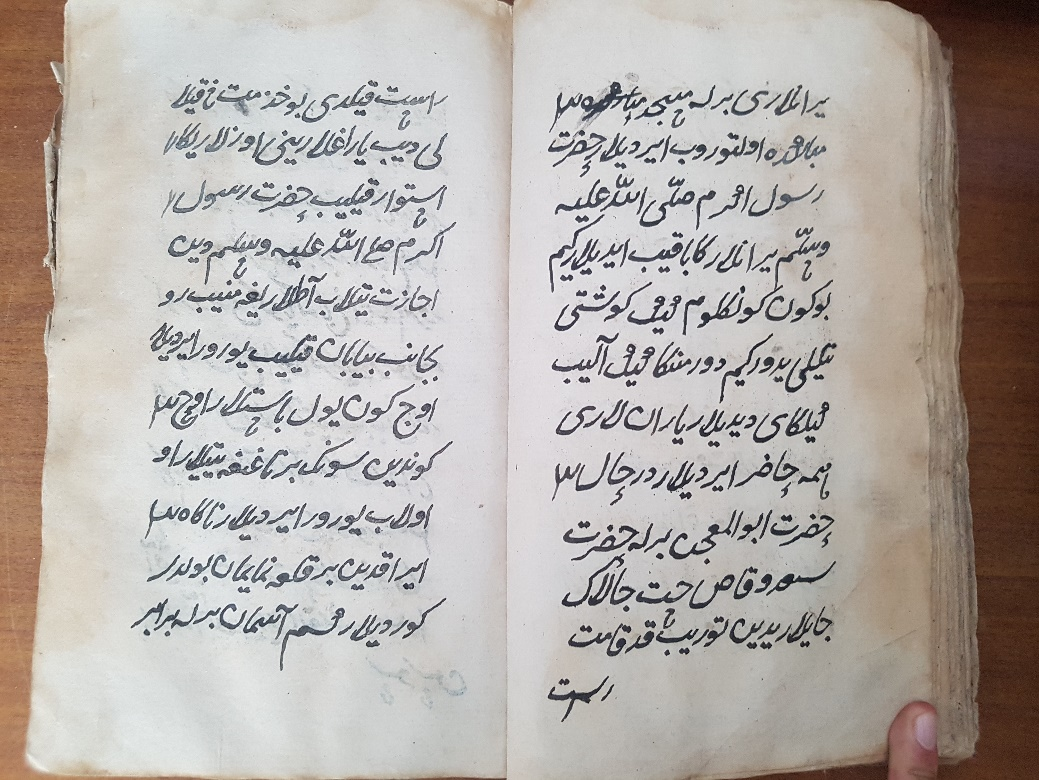 یرانلاری برله مسجد
مبارکده اولتوروب ایردیلار حضرت
رسول اکرم صلّی اللّه علیه
وسلّم یرانلارکا باقیب ایدیلار کیم
بوکون کونکلوم کیک کوشتی
تیلی یدورکیم دور منکا کیک آلیب
کیلکای دیدیلار یاران لاری
همه حاضر ایردیلار در حال ۳
حضرت ابوالمعجن برله حضرت
سعد وقاص جست جالاک
جایلاریدین توریب قد قامت
راست
راست قیلدی بو خذمت نی قیلا
لی دیب یاراغلارینی اوزلاریکا
استوار قیلیب حضرت رسول
اکرم صلی اللّه علیه وسلم دین
اجازت تیلاب آطلاریغه منیب رو
بجانب بیابان قیلیب یورور ایردیلار
اوج کون یول باستیلار اوج ۳
کوندین سونک بر تاغغه یتیلار او
اولاب یورور ایردیلار ناکاه ۳
ایراقدین بر قلعه نمایان بولدر
کوردیلار آسمان برله برابر